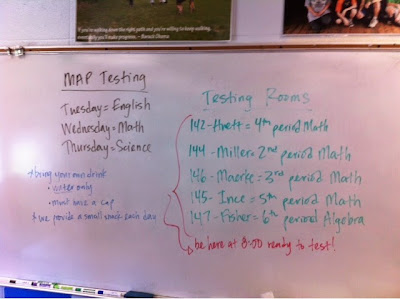 If you're walking down the right path and you're willing to keep walking,
eventually you'll make progress. - Barack Obama
MAP Testing
Tuesday = English
Wednesday = Math
Thursday = Science
* bring your own drink
• water only
• must have a cap
* we provide a small snack each day
Testing Rooms
142 - = 4th period Math
144 - Miller = 2nd period Math
146 - = 3rd period Math
145 - Ince = 5th period Math
147 - Fisher = 6th period Algebra
be here at 8:50 ready to test!